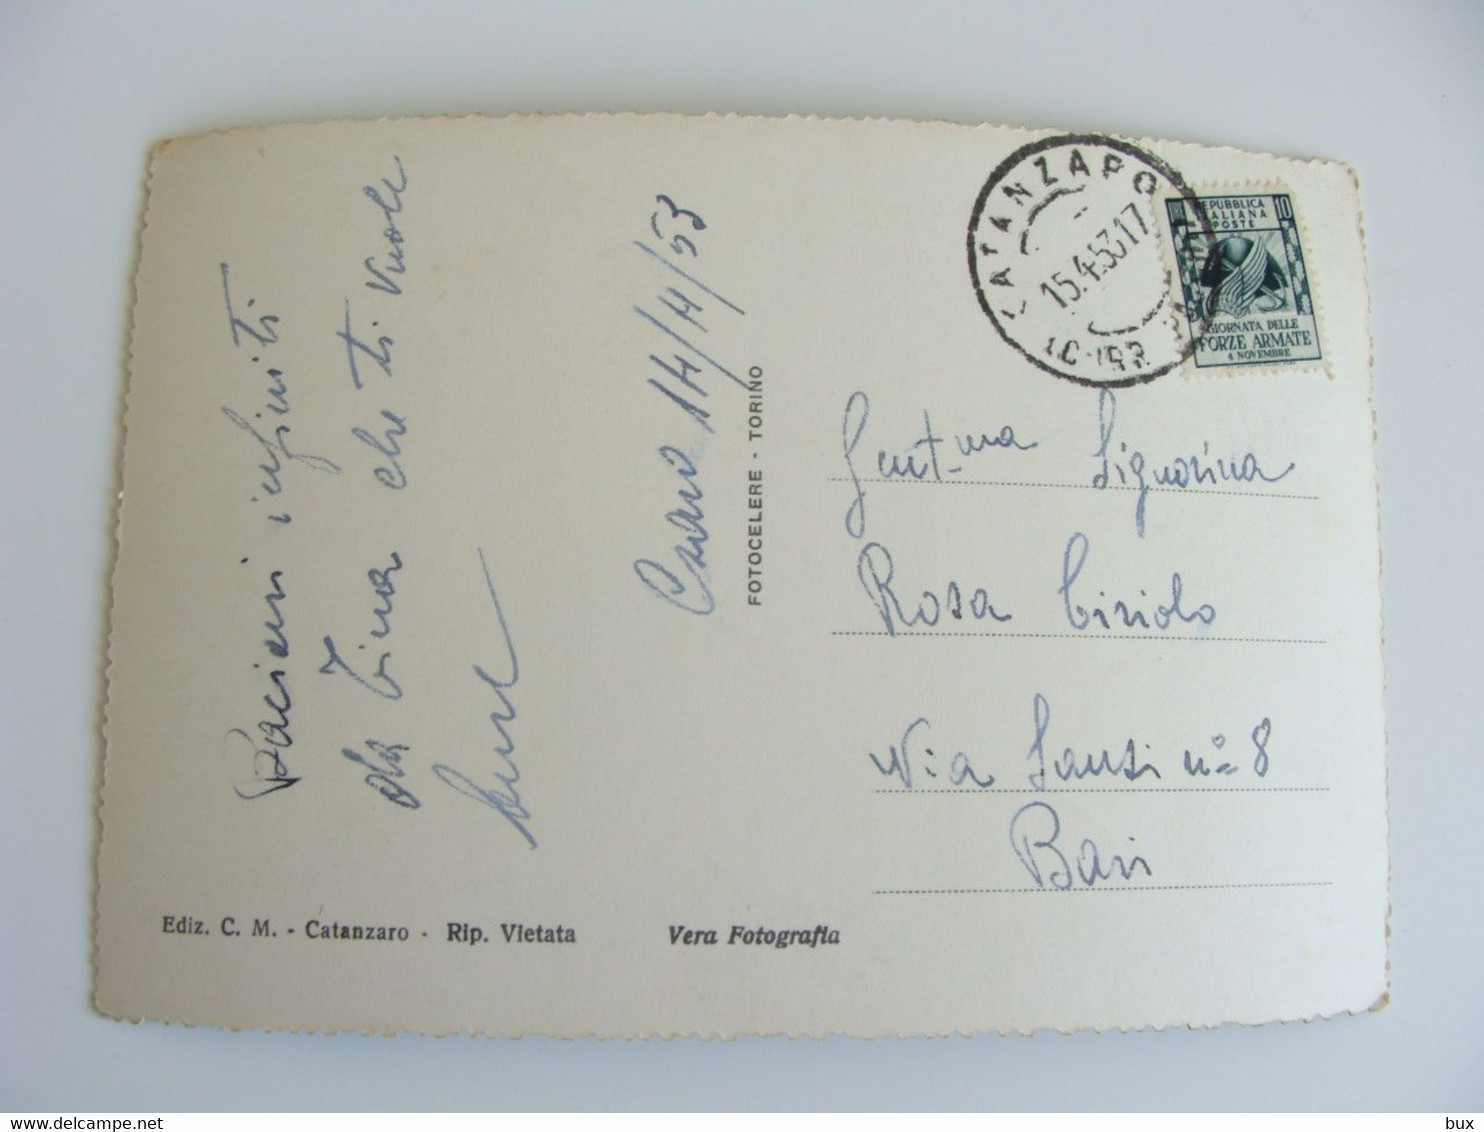 Bacioni infiniti
da Tina che ti vuole
bene
14/4/53
FOTOCELERE - TORINO
CATANZARO
15.4.53.17
REPUBBLICA
ITALIANA
POSTE
10
GIORNATA DELLE
FORZE ARMATE
4 NOVEMBRE
Gent.ma Signorina
Rosa Ciriolo
Via n° 8
Bari
Ediz. C. M. - Catanzaro - Rip. Vietata
Vera Fotografia
bux